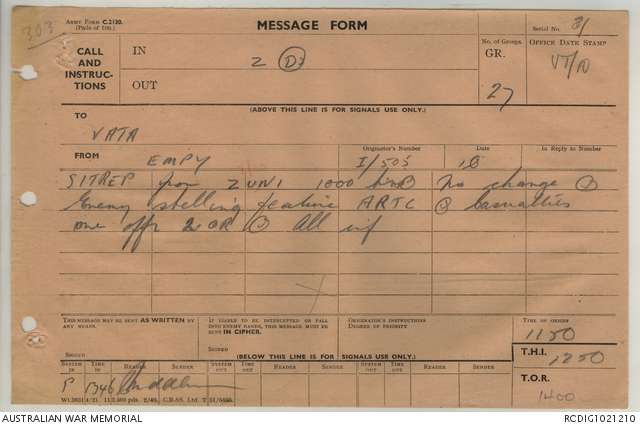 303
ARMY FORM C.2130.
(Pads of 100.)
MESSAGE FORM
Serial No. 31
CALL AND INSTRUCTIONS
IN
Z (D)
OUT
No. of Groups.
GR.
27
OFFICE DATE STAMP
(ABOVE THIS LINE IS FOR SIGNALS USE ONLY.)
TO
VATA
FROM
EMPY
Originator's Number
I/505
Date
18
In Reply to Number
SITREP from ZUNI 1000 hrs No change
Enemy shelling feature ARTC casualties
one offr 2 OR All inf
THIS MESSAGE MAY BE SENT AS WRITTEN BY ANY MEANS.
SIGNED
IF LIABLE TO BE INTERCEPTED OR FALL INTO ENEMY HANDS, THIS MESSAGE MUST BE SENT IN CIPHER.
SIGNED
ORIGINATOR'S INSTRUCTIONS
DEGREE OF PRIORITY
TIME OF ORIGIN
1150
(BELOW THIS LINE IS FOR SIGNALS USE ONLY.)
T.H.I. 1250
SYSTEM IN TIME IN READER SENDER SYSTEM OUT TIME OUT READER SENDER SYSTEM OUT TIME OUT READER SENDER
P 1346
T.O.R.
1400
AUSTRALIAN WAR MEMORIAL
RCDIG1021210